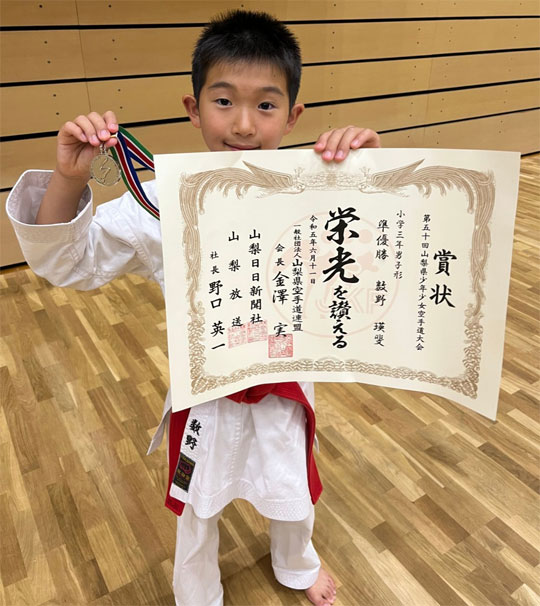 賞状
第五十回山梨県少年少女空手道大会
小学三年男子形
準優勝 数野 瑛斐
栄光を讃える
令和五年六月十一日
一般社団法人山梨県空手道連盟
会長 金澤 実
山梨日日新聞社
山梨放送
社長 野口 英一
数野